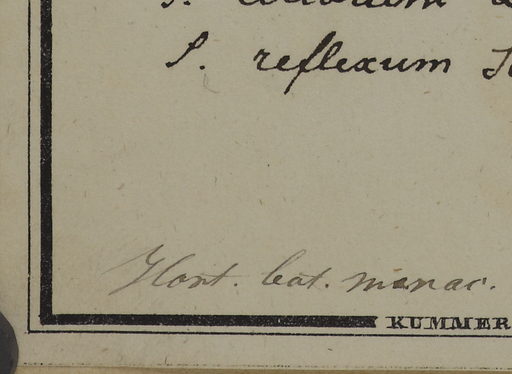 S. reflexum
Hort. bot. monac.
KUMMER